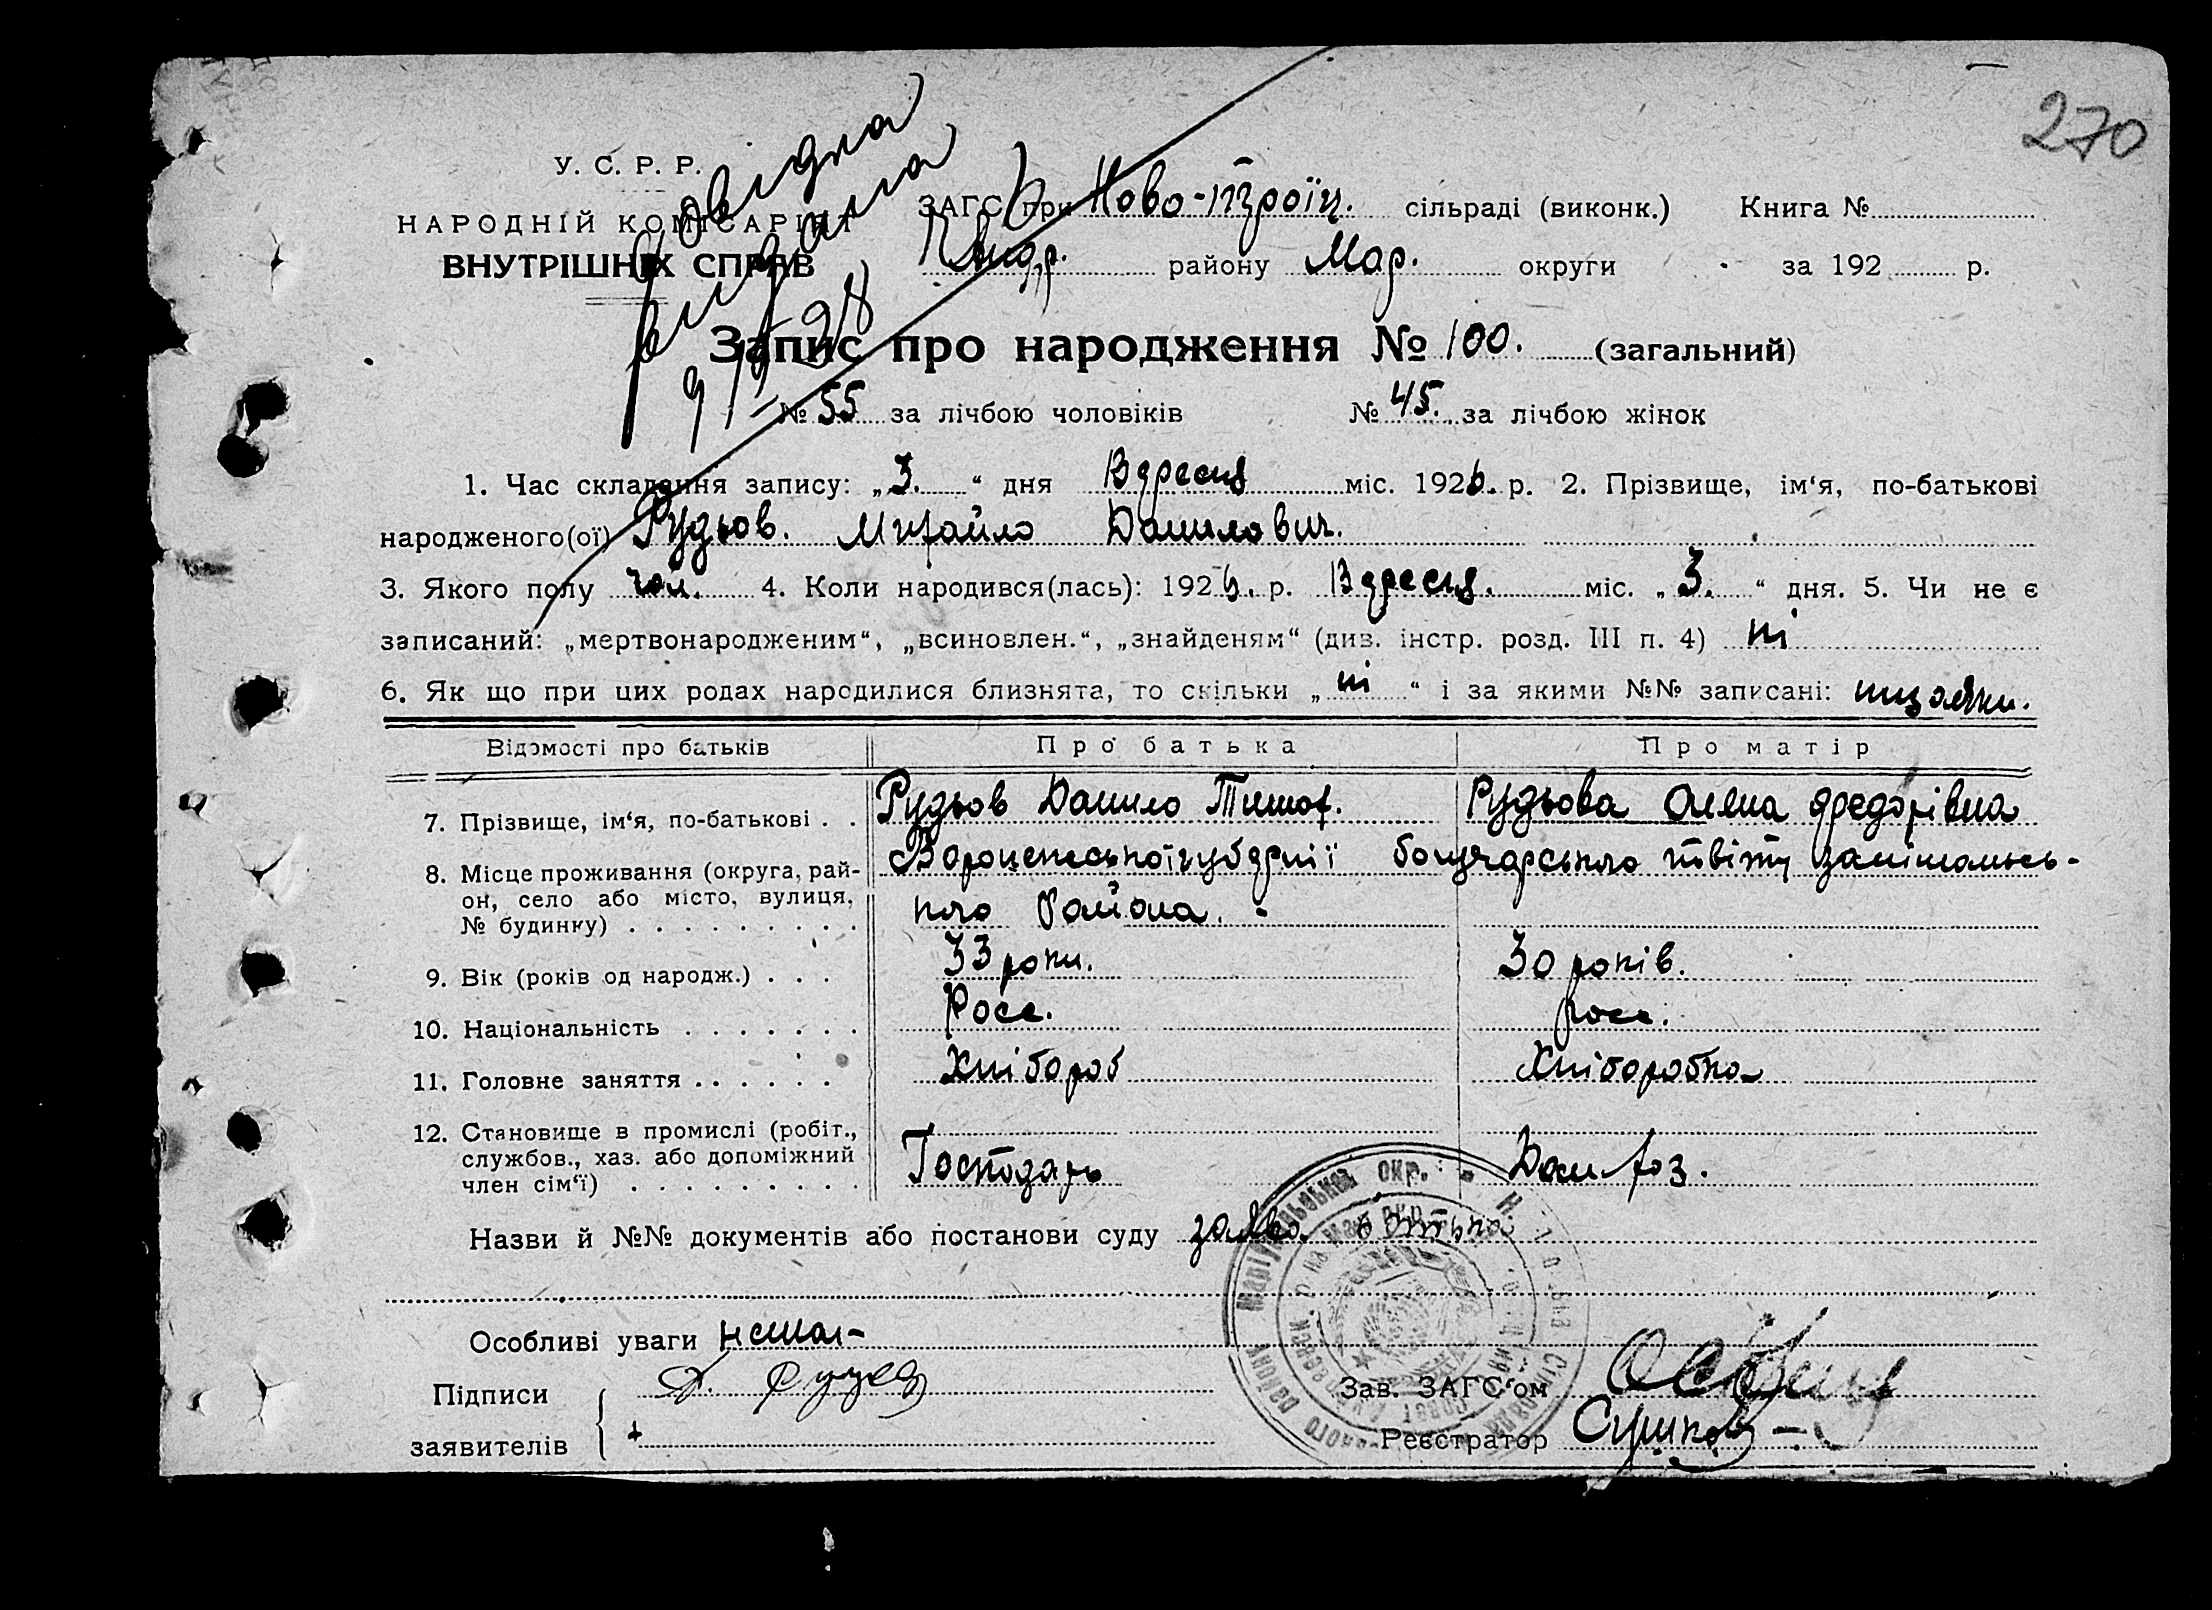 270
У. С. Р. Р.
НАРОДНІЙ КОМІСАРІЯТ
ВНУТРІШНІХ СПРАВ
Довідка
видана
28
ЗАГС при Ново-троїц. сільраді (виконк.) Книга №
району Мар. округи за 192 р.
Запис про народження № 100. (загальний)
№ 55 за лічбою чоловіків № 45. за лічбою жінок
1. Час складання запису: „3.“ дня Вересня міс. 1926. р. 2. Прізвище, ім‘я, по-батькові
народженого(ої) Рудьов. Михайло Данилович.
3. Якого полу чол. 4. Коли народився(лась): 1926. р. Вересня. міс. „3.“ дня. 5. Чи не є
записаний: „мертвонародженим“, „всиновлен.“, „знайденям“ (див. інстр. розд. III п. 4) ні
6. Як що при цих родах народилися близнята, то скільки „ні“ і за якими №№ записані:
Відомості про батьків Про батька Про матір
7. Прізвище, ім‘я, по-батькові . . Рудьов Данило Тимоф. Рудьова Олена Федорівна
8. Місце проживання (округа, рай-
он, село або місто, вулиця,
№ будинку) . . . . . . . . .
Вороценської губернії богучарського повіту
кого Района.
9. Вік (років од народж.) . . . 33 роки. 30 років.
10. Національність . . . . . . . Росс. росс.
11. Головне заняття . . . . . . Хлібороб Хліборобка
12. Становище в промислі (робіт.,
службов., хаз. або допоміжний
член сім‘ї) . . . . . . . . .
Господарь Дом хоз.
Назви й №№ документів або постанови суду заява батька
Особливі уваги немає-
Підписи Д.
заявителів
Зав. ЗАГС‘ом
Реєстратор Сушков
Маріупільської окр.